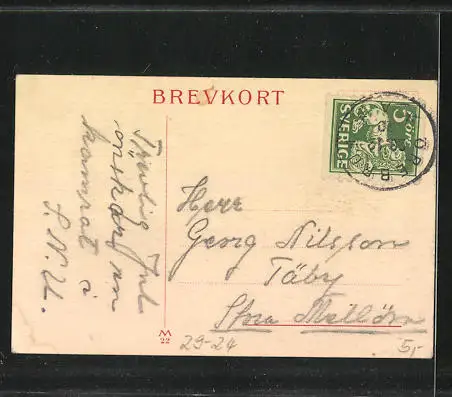 BREVKORT
Trevlig Jul
önskar en
kamrat i
S.N.U.
5 öre
SVERIGE
ÖREBRO
Herr
Georg Nilsson
Täby
Stora Mellösa
M
22
29-24
5,-